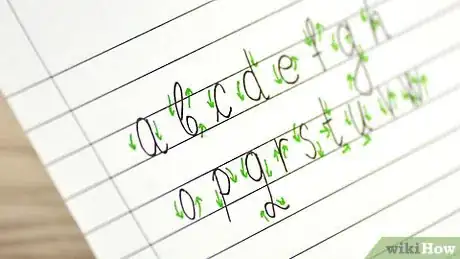 a b c d e f g h
o p q r s t u v w
wikiHow